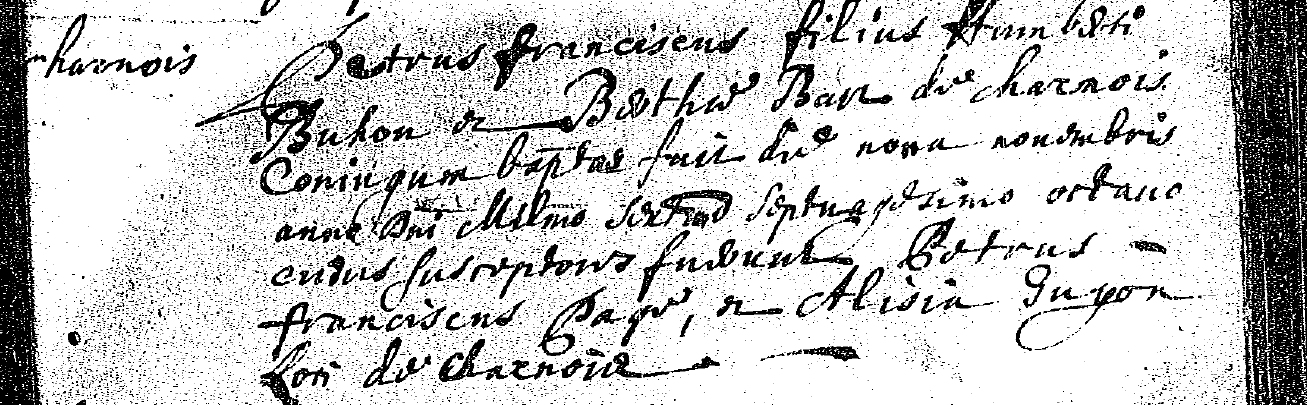 charnois
Petrus franciscus filius Humberti
Buhon et Berthe Barr de charnois
Coniugum baptas fuit die nona novembris
anno Dni Millmo sexto septuagesimo octavo
cuius susceptores fuerunt Petrus
franciscus Page, et Alisia Guyon
son de charnois